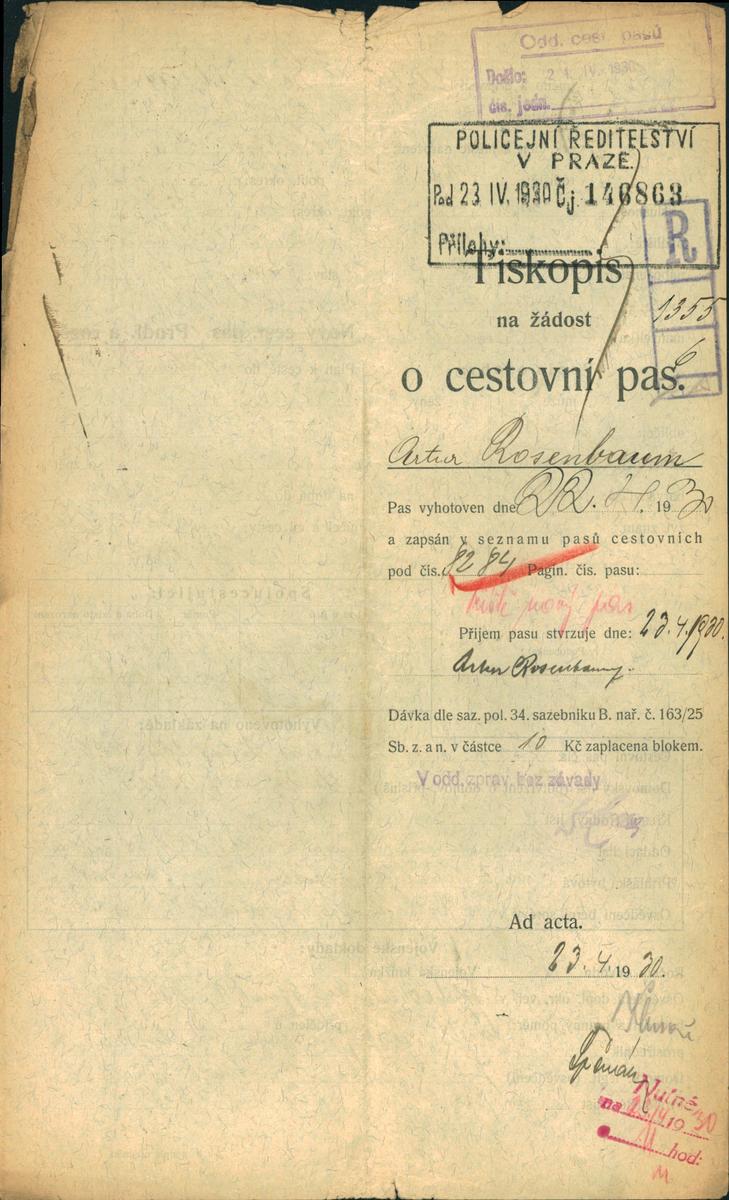 Odd. cest. pasů
Došlo: 21. IV. 1930
čís. jedn.
POLICEJNÍ ŘEDITELSTVÍ
V PRAZE.
Pod 23 IV. 1930 Čj 146863
Přílohy:
R
Tiskopis
na žádost
1355
6
o cestovní pas.
Artur Rosenbaum
Pas vyhotoven dne 22. 4. 1930
a zapsán v seznamu pasů cestovních
pod čís. 8284 Pagin. čís. pasu:
nový pas
Příjem pasu stvrzuje dne: 23.4.1930.
Artur Rosenbaum.
Dávka dle saz. pol. 34. sazebníku B. nař. č. 163/25
Sb. z. a n. v částce 10 Kč zaplacena blokem.
V odd. zprav. bez závady
Ad acta.
23. 4. 1930.
Nutné
na 23/4 1930
11 hod:
11